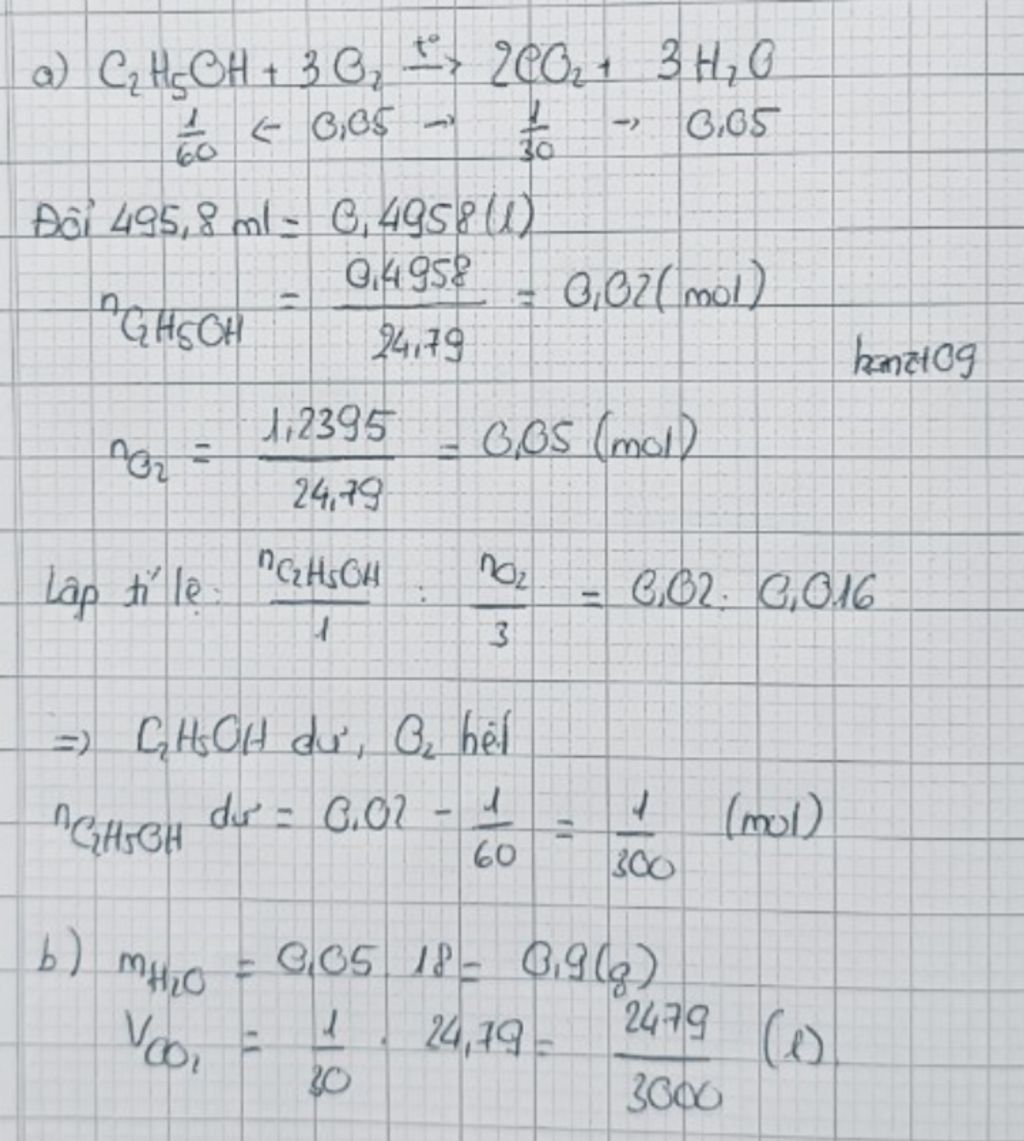 a) C₂H₅OH + 3O₂ t°→ 2CO₂ + 3H₂O
1/60 ← 0,05 → 1/30 → 0,05
Đổi 495,8 ml = 0,4958 (l)
nC₂H₅OH = 0,4958/24,79 = 0,02 (mol)
nO₂ = 1,2395/24,79 = 0,05 (mol)
Lập tỉ lệ: nC₂H₅OH/1 : nO₂/3 = 0,02 : 0,016
=> C₂H₅OH dư, O₂ hết
nC₂H₅OH dư = 0,02 - 1/60 = 1/300 (mol)
b) mH₂O = 0,05 . 18 = 0,9 (g)
VCO₂ = 1/30 . 24,79 = 2479/3000 (l)